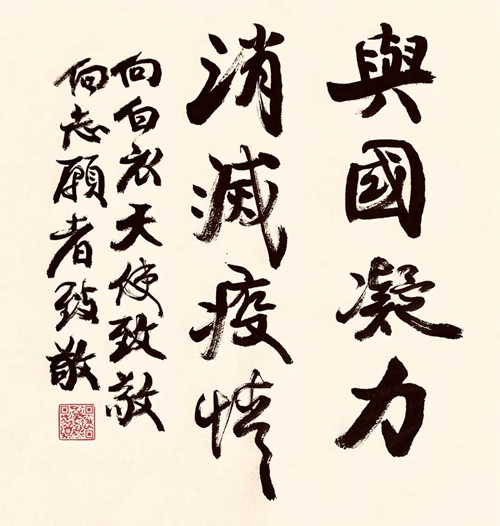 與國凝力
消滅疫情
向白衣天使致敬
向志願者致敬